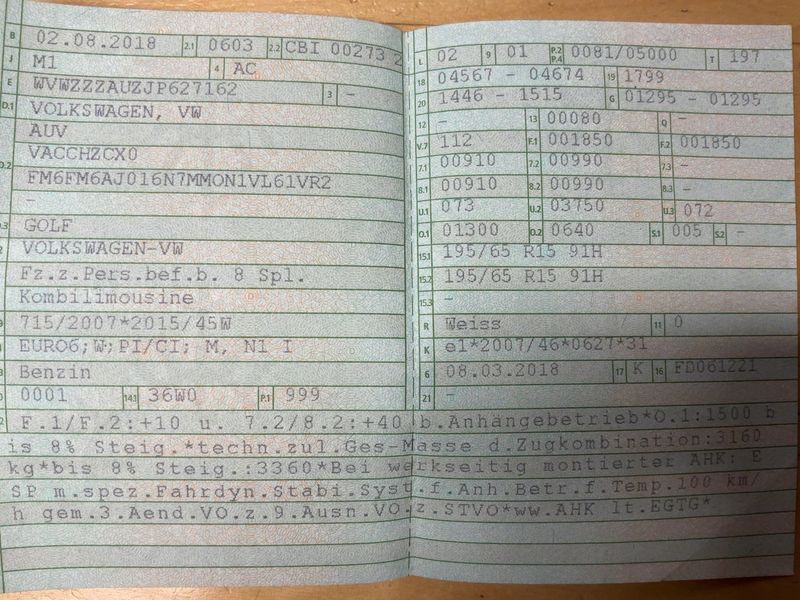 B 02.08.2018 2.1 0603 2.2 CBI 00273 2
J M1 4 AC
E WVWZZZAUZJP627162 3 –
D.1 VOLKSWAGEN, VW
AUV
D.2 VACCHZCX0
FM6FM6AJ016N7MMON1VL61VR2
–
D.3 GOLF
2 VOLKSWAGEN-VW
Fz.z.Pers.bef.b. 8 Spl.
Kombilimousine
9 715/2007*2015/45W
EURO6;W;PI/CI; M, N1 I
3 Benzin
0001 14.1 36W0 P.1 999
L 02 9 01 P.2 P.4 0081/05000 T 197
18 04567 - 04674 19 1799
20 1446 - 1515 G 01295 - 01295
12 – 13 00080 Q –
V.7 112 F.1 001850 F.2 001850
7.1 00910 7.2 00990 7.3 –
8.1 00910 8.2 00990 8.3 –
U.1 073 U.2 03750 U.3 072
O.1 01300 O.2 0640 S.1 005 S.2 –
15.1 195/65 R15 91H
15.2 195/65 R15 91H
15.3 –
R Weiss 11 0
K e1*2007/46*0627*31
6 08.03.2018 17 K 16 FD061221
21 –
F.1/F.2:+10 u. 7.2/8.2:+40 b.Anhängebetrieb*O.1:1500 b
is 8% Steig.*techn.zul.Ges-Masse d.Zugkombination:3160
kg*bis 8% Steig.:3360*Bei werkseitig montierter AHK: E
SP m.spez.Fahrdyn.Stabi.Syst.f.Anh.Betr.f.Temp.100 km/
h gem.3.Aend.VO.z.9.Ausn.VO.z.STVO*ww.AHK lt.EGTG*